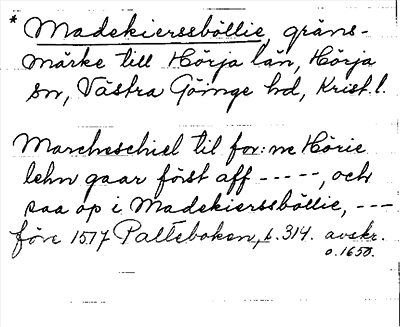 * Madekierssböllie, gräns-
märke till Hörja län, Hörja
sn, Västra Göinge hd, Krist. l.
Marcheschiel til for:ne Hörie
lehn gaar först aff -----, och
saa op i Madekierssböllie, ---
före 1517 Palteboken, s. 314. avskr.
o. 1650.